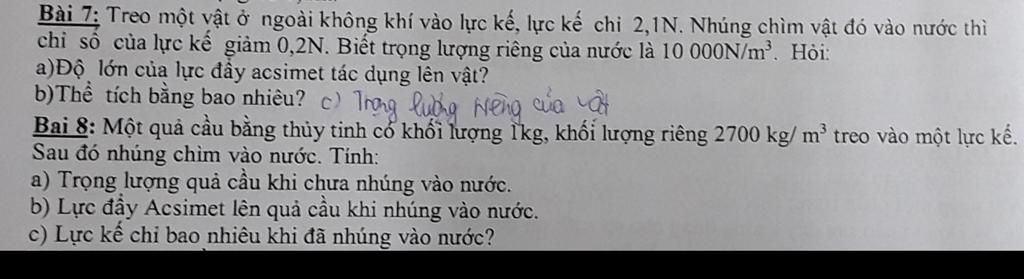 Bài 7: Treo một vật ở ngoài không khí vào lực kế, lực kế chỉ 2,1N. Nhúng chìm vật đó vào nước thì
chỉ số của lực kế giảm 0,2N. Biết trọng lượng riêng của nước là 10 000N/m³. Hỏi:
a)Độ lớn của lực đẩy acsimet tác dụng lên vật?
b)Thể tích bằng bao nhiêu? c) Trọng lượng riêng của vật
Bai 8: Một quả cầu bằng thủy tinh có khối lượng 1kg, khối lượng riêng 2700 kg/ m³ treo vào một lực kế.
Sau đó nhúng chìm vào nước. Tính:
a) Trọng lượng quả cầu khi chưa nhúng vào nước.
b) Lực đẩy Acsimet lên quả cầu khi nhúng vào nước.
c) Lực kế chỉ bao nhiêu khi đã nhúng vào nước?